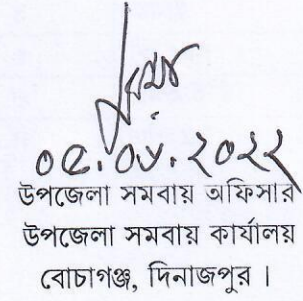 ০৫.০৬.২০২২
উপজেলা সমবায় অফিসার
উপজেলা সমবায় কার্যালয়
বোচাগঞ্জ, দিনাজপুর ।